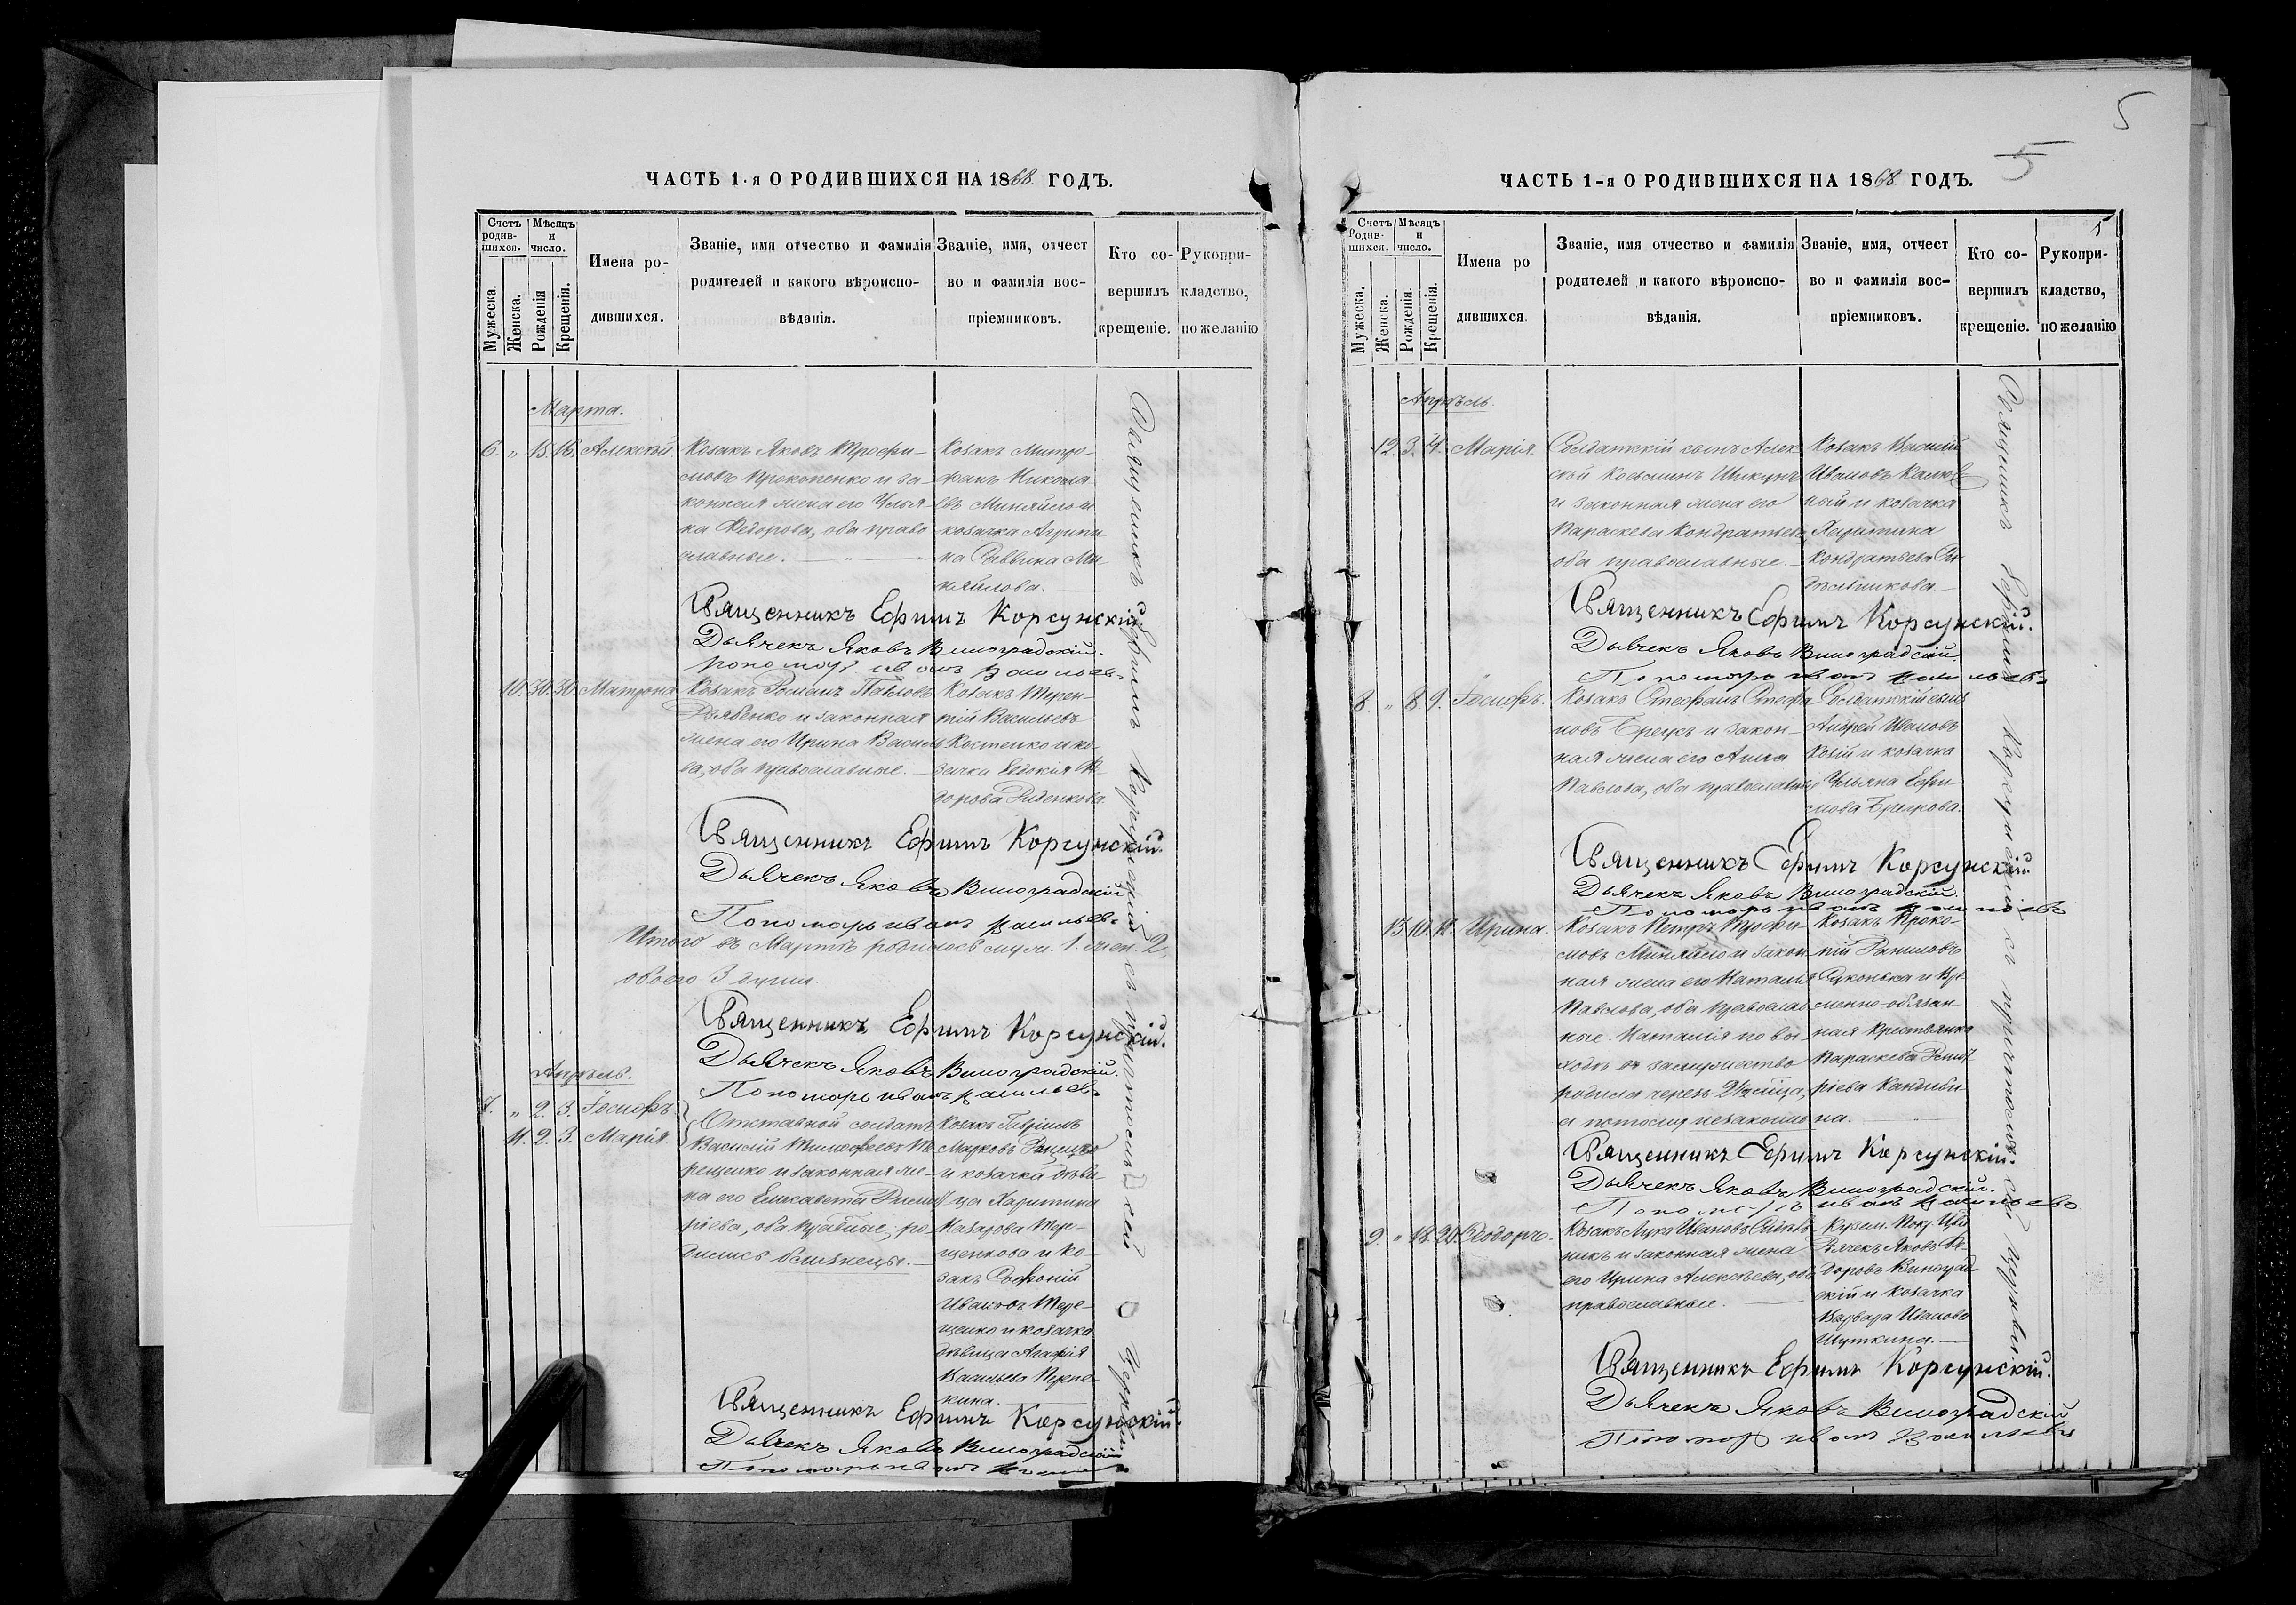 ЧАСТЬ 1-я О РОДИВШИХСЯ НА 1868 ГОДЪ.
Счетъ родив-шихся.
Мѣсяцъ и число.
Мужеска.
Женска.
Рожденія
Крещенія.
Имена ро-
дившихся.
Званіе, имя отчество и фамилія
родителей и какого вѣроиспо-
вѣданія.
Званіе, имя, отчест
во и фамилія вос-
пріемниковъ.
Кто со-
вершилъ
крещеніе.
Рукопри-
кладство,
по желанію
Марта.
6. „ 15. 16. Алексѣй
Козакъ Яковъ Трофи-
мовъ Прокопенко и за-
конная жена его Улья-
на Федорова, оба право
славные.
Козакъ Митро-
фанъ Никола-
евъ Миняйло и
козачка Агрипи
на Саввина Ми-
няйлова.
Священникъ Ефимъ Корсунскій.
Дьячекъ Яковъ Виноградскій.
Пономарь Иванъ
10. 30. 30. Матрона
Козакъ Романъ Павловъ
и законная
жена его Ирина Василь
ва, оба православные.
Козакъ Терен-
тій Васильевъ
Костенко и ко-
зачка Евдокія Ѳе-
дорова Риденкова.
Священникъ Ефимъ Корсунскій.
Дьячекъ Яковъ Виноградскій
Пономарь Иванъ
Итого въ Мартѣ родилось муж. 1. жен. 2,
обоего 3 души.
Священникъ Ефимъ Корсунскій.
Дьячекъ Яковъ Виноградскій.
Пономарь Иванъ
Апрѣль.
7. „ 2. 3. Іосифъ
11. 2. 3. Марія
Отставной солдатъ
Василій Тимофеевъ Те
рещенко и законная же-
на его Елисавета Дими
ріева, оба прав-ные, ро-
дились близнецы.
Козакъ Гавріилъ
Марковъ
и козачка дѣви
ца Харитина
Назарова Тере-
щенкова и ко-
закъ Софоній
Ивановъ Тере-
щенко и козачка
дѣвица Агафія
Васильева
кина.
Священникъ Ефимъ Корсунскій.
Дьячекъ Яковъ Виноградскій
Пономарь Иванъ
Священникъ Ефимъ Корсунскій съ причтомъ
5
5
ЧАСТЬ 1-я О РОДИВШИХСЯ НА 1868 ГОДЪ.
5
Счетъ Родив-шихся.
Мѣсяцъ и число.
Мужеска.
Женска.
Рожденія.
Крещенія.
Имена ро
дившихся.
Званіе, имя отчество и фамилія
родителей и какого вѣроиспо-
вѣданія.
Званіе, имя, отчест
во и фамилія вос-
пріемниковъ.
Кто со-
вершилъ
крещеніе.
Рукопри-
кладство,
по желанію
Апрѣль.
12. 3. 4. Марія.
Солдатскій сынъ Алек
сѣй Косьминъ Шикунъ
и законная жена его
Параскева Кондратьева
оба православные.
Козакъ Василій
Ивановъ
ный и козачка
Харитина
Кондратьева
Священникъ Ефимъ Корсунскій.
Дьячекъ Яковъ Виноградскій.
Пономарь Иванъ
8. „ 8. 9. Іосифъ.
Козакъ Стефанъ Стефа
новъ Брецъ и закон-
ная жена его Анна
Павлова, оба православны
Солдатскій сынъ
Андрей Ивановъ
Козій и козачка
Ульяна Ефи
мова Брецкова.
Священникъ Ефимъ Корсунскій.
Дьячекъ Яковъ Виноградскій.
Пономарь Иванъ
13. 10. Ирина.
Козакъ Петръ Трофи
мовъ Миняйло и закон
ная жена его Наталья
Павлова, оба православ
ные. Наталія по вы-
ходѣ въ замужество
родила черезъ 2½ мѣсяца,
а потому незаконно
Козакъ Проко-
пій
и вре-
менно-обязан
ная крестьянка
Параскева Димит
ріева
на.
Священникъ Ефимъ Корсунскій.
Дьячекъ Яковъ Виноградскій.
Пономарь Иванъ
9. „ 18. 20. Ѳеодоръ.
Козакъ Лука Ивановъ
никъ и законная жена
его Ирина Алексѣева, оба
православные.
Дьячекъ Яковъ Ѳе-
доровъ Виноград
скій и козачка
Варвара Иванова
Шуткина.
Священникъ Ефимъ Корсунскій.
Дьячекъ Яковъ Виноградскій
Пономарь Иванъ
Священникъ Ефимъ Корсунскій съ причтомъ